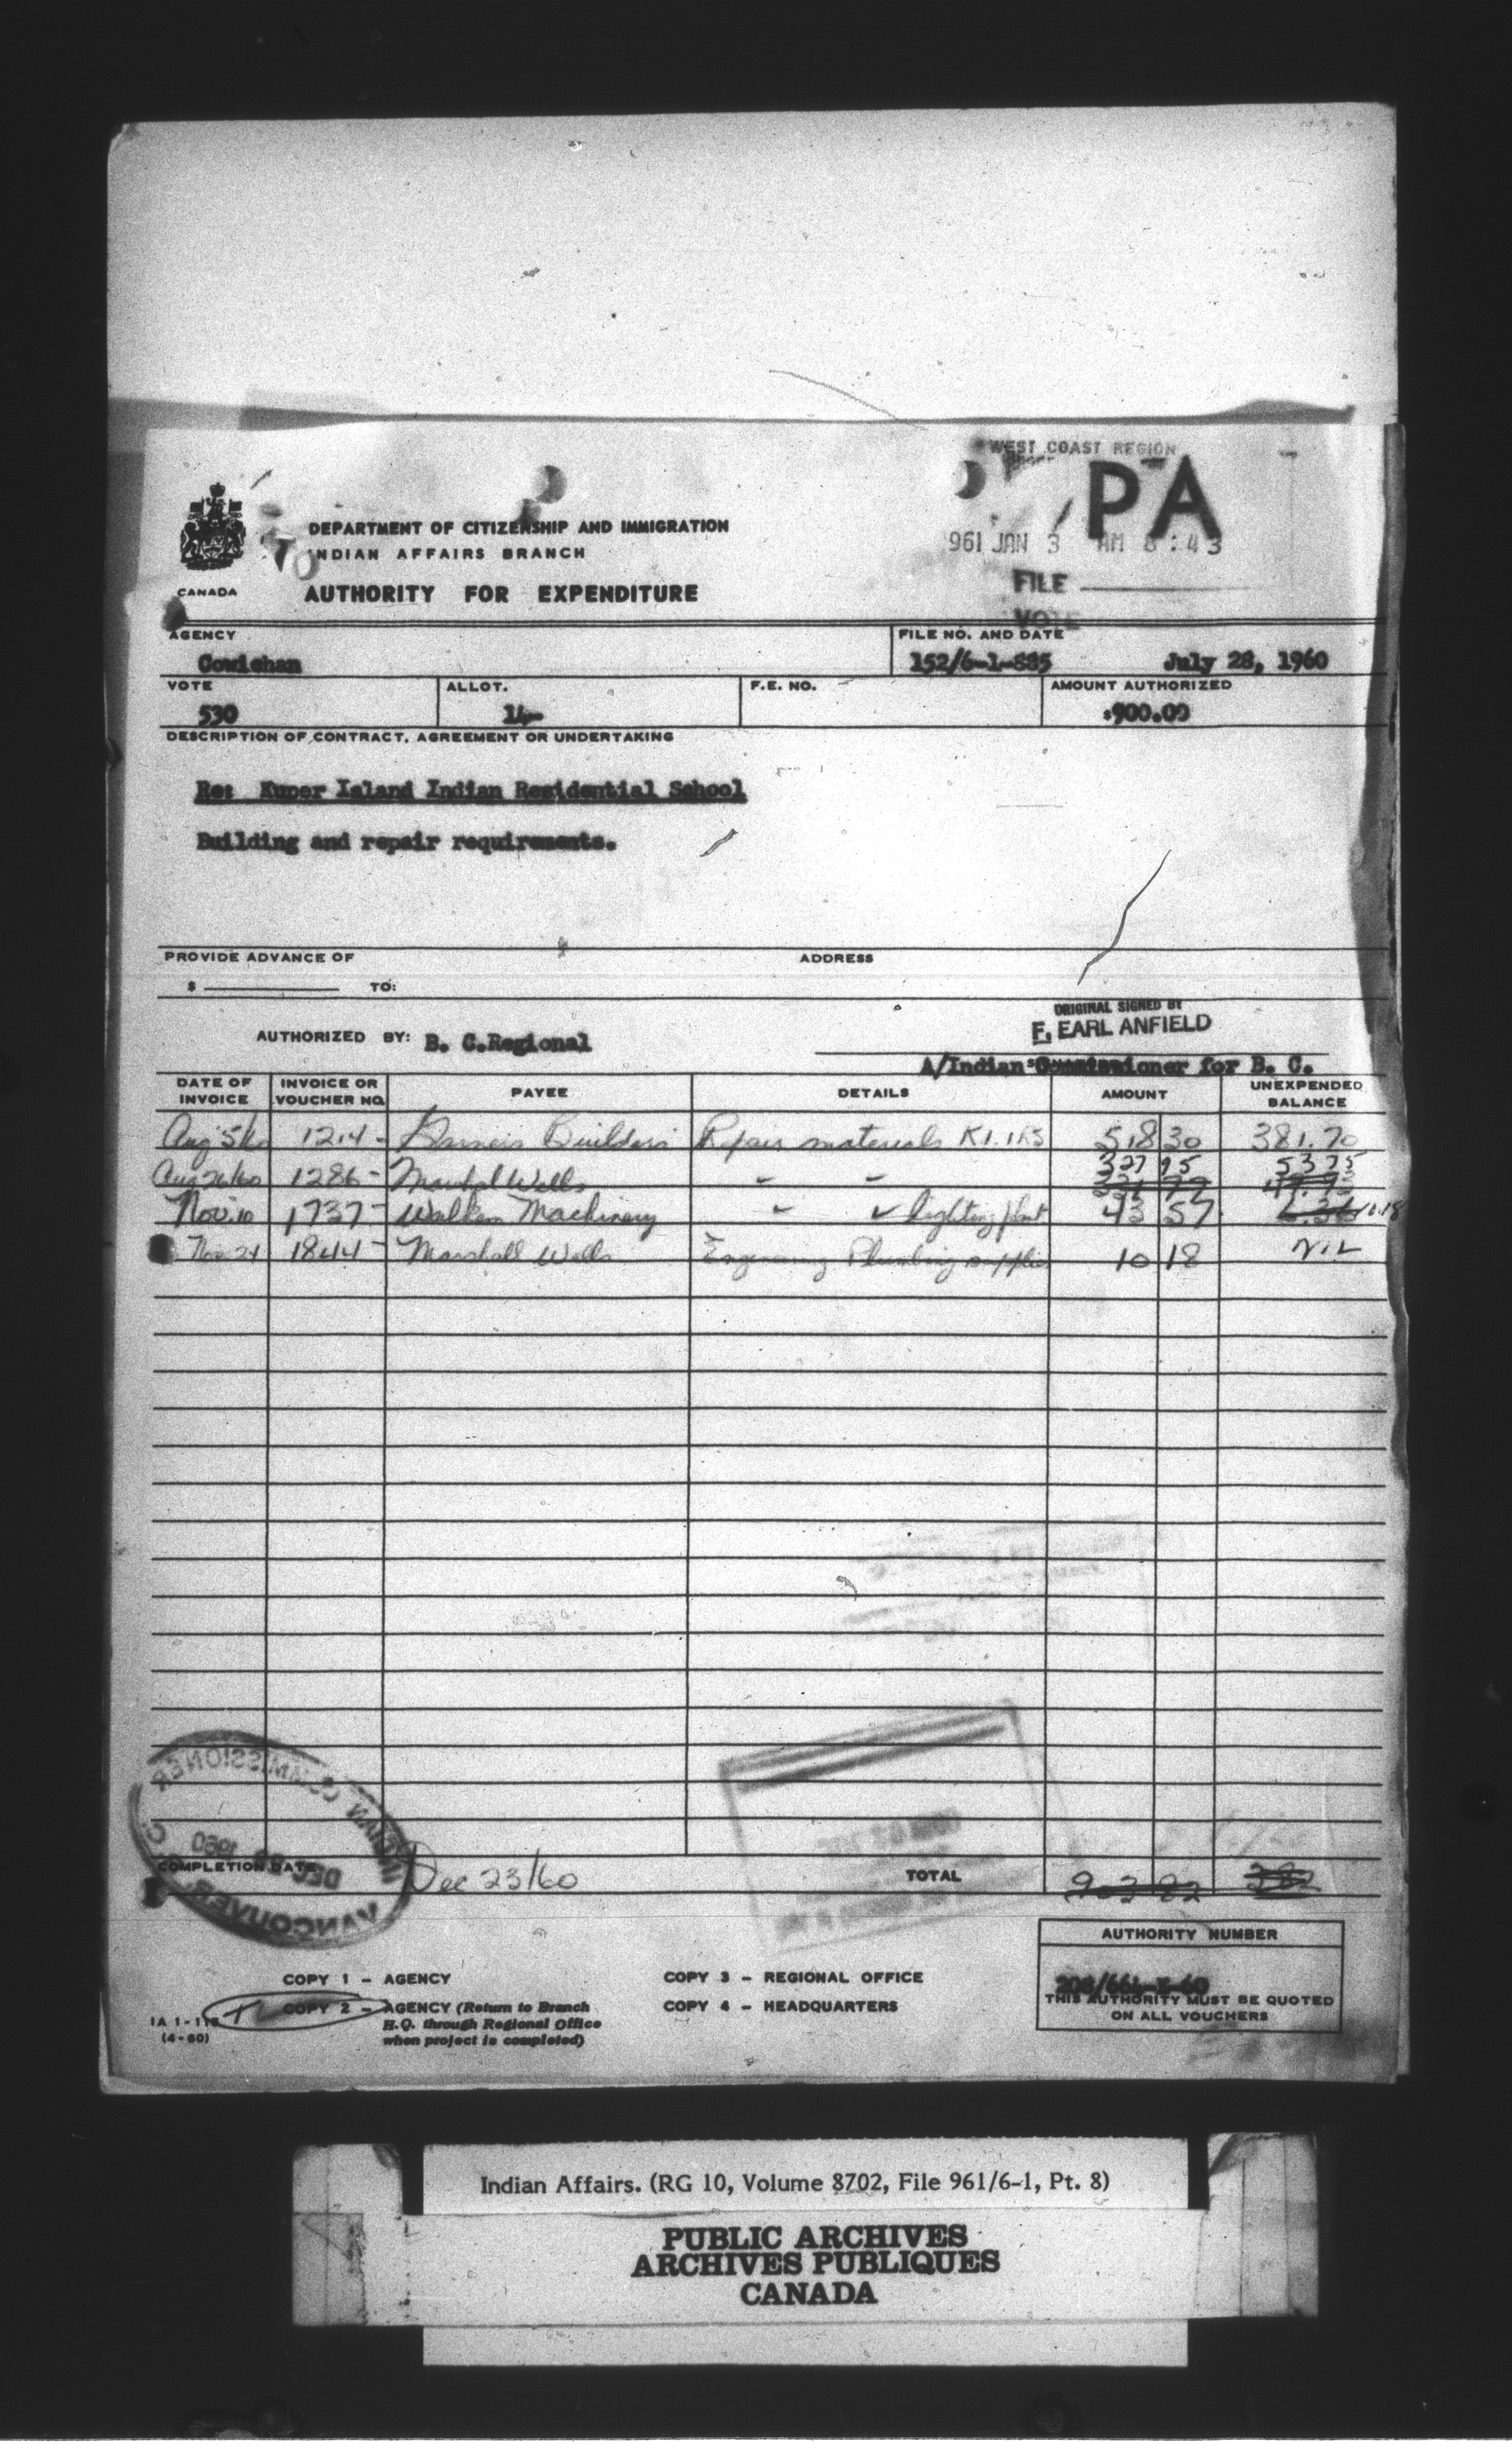 WEST COAST REGION
PA
961 JAN 3 AM 8:43
FILE
VOTE
DEPARTMENT OF CITIZENSHIP AND IMMIGRATION
INDIAN AFFAIRS BRANCH
CANADA
AUTHORITY FOR EXPENDITURE
AGENCY FILE NO. AND DATE
Cowichan 152/6-1-885 July 28, 1960
VOTE ALLOT. F.E. NO. AMOUNT AUTHORIZED
530 14- $900.00
DESCRIPTION OF CONTRACT, AGREEMENT OR UNDERTAKING
Re: Kuper Island Indian Residential School
Building and repair requirements.
PROVIDE ADVANCE OF ADDRESS
$ TO:
ORIGINAL SIGNED BY
F. EARL ANFIELD
AUTHORIZED BY: B. C. Regional
A/Indian Commissioner for B. C.
DATE OF INVOICE INVOICE OR VOUCHER NO. PAYEE DETAILS AMOUNT UNEXPENDED BALANCE
Aug 5/60 1214 - Builders Repair materials K.I. IRS 518 30 381.70
327 95 53 75
Aug 26/60 1286 - Marshal Wells " "
Nov. 10 1737 - Walkem Machinery " " lighting plant 43 57 10.18
Nov. 24 1844 - Marshall Wells Plumbing supplies 10 18 NIL
INDIAN COMMISSIONER
DEC 1960
VANCOUVER
COMPLETION DATE: Dec 23/60 TOTAL 903 92
AUTHORITY NUMBER
THIS AUTHORITY MUST BE QUOTED
ON ALL VOUCHERS
COPY 1 - AGENCY COPY 3 - REGIONAL OFFICE
COPY 2 - AGENCY (Return to Branch COPY 4 - HEADQUARTERS
H.Q. through Regional Office
when project is completed)
IA 1-11
(4-60)
Indian Affairs. (RG 10, Volume 8702, File 961/6-1, Pt. 8)
PUBLIC ARCHIVES
ARCHIVES PUBLIQUES
CANADA